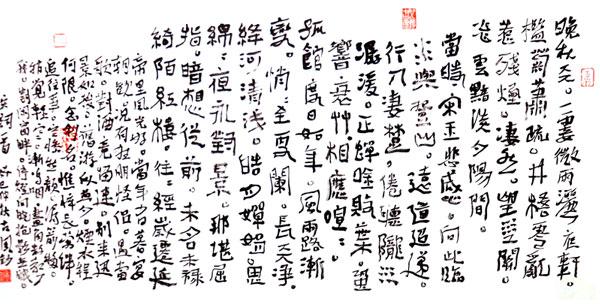 晚秋天。一霎微雨灑庭軒。
檻菊蕭疏。井梧零亂
惹殘煙。淒然。望江關。
飛雲黯淡夕陽間。
當時宋玉悲感。向此臨
水與登山。遠道迢遞。
行人淒楚。倦聽隴水
潺湲。正蟬吟敗葉。蛩
響衰草相應喧喧。
孤館度日如年。風露漸
變。悄悄至更闌。長天淨。
絳河清淺。皓月嬋娟。思
綿綿。夜永對景。那堪屈
指。暗想從前。未名未祿
綺陌紅樓。往往經歲遷延
帝里風光好。當年少日。暮宴
朝歡。況有狂朋怪侶。遇當
歌對酒競留連。別來迅
景如梭。舊遊似夢。煙水程
何限。念利名。憔悴長縈絆。
追往事。空慘愁顏。漏箭移。
稍覺輕寒。漸嗚咽畫角數聲殘。
對閒窗畔。停燈向曉抱影無眠。